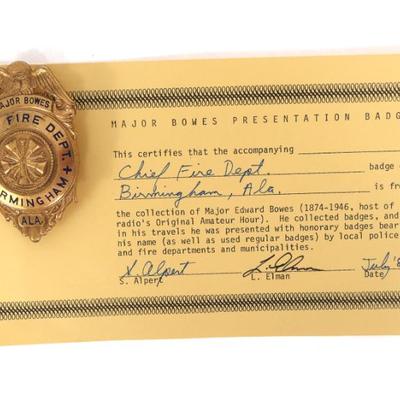 MAJOR BOWES
FIRE DEPT.
BIRMINGHAM
ALA.
MAJOR BOWES PRESENTATION BADG
This certifies that the accompanying
Chief Fire Dept. badge
Birmingham, Ala. is fr
the collection of Major Edward Bowes (1874-1946, host of
radio's Original Amateur Hour). He collected badges, and
in his travels he was presented with honorary badges bear
his name (as well as used regular badges) by local police
and fire departments and municipalities.
S. Alpert L. Elman July '8
S. Alpert L. Elman Date